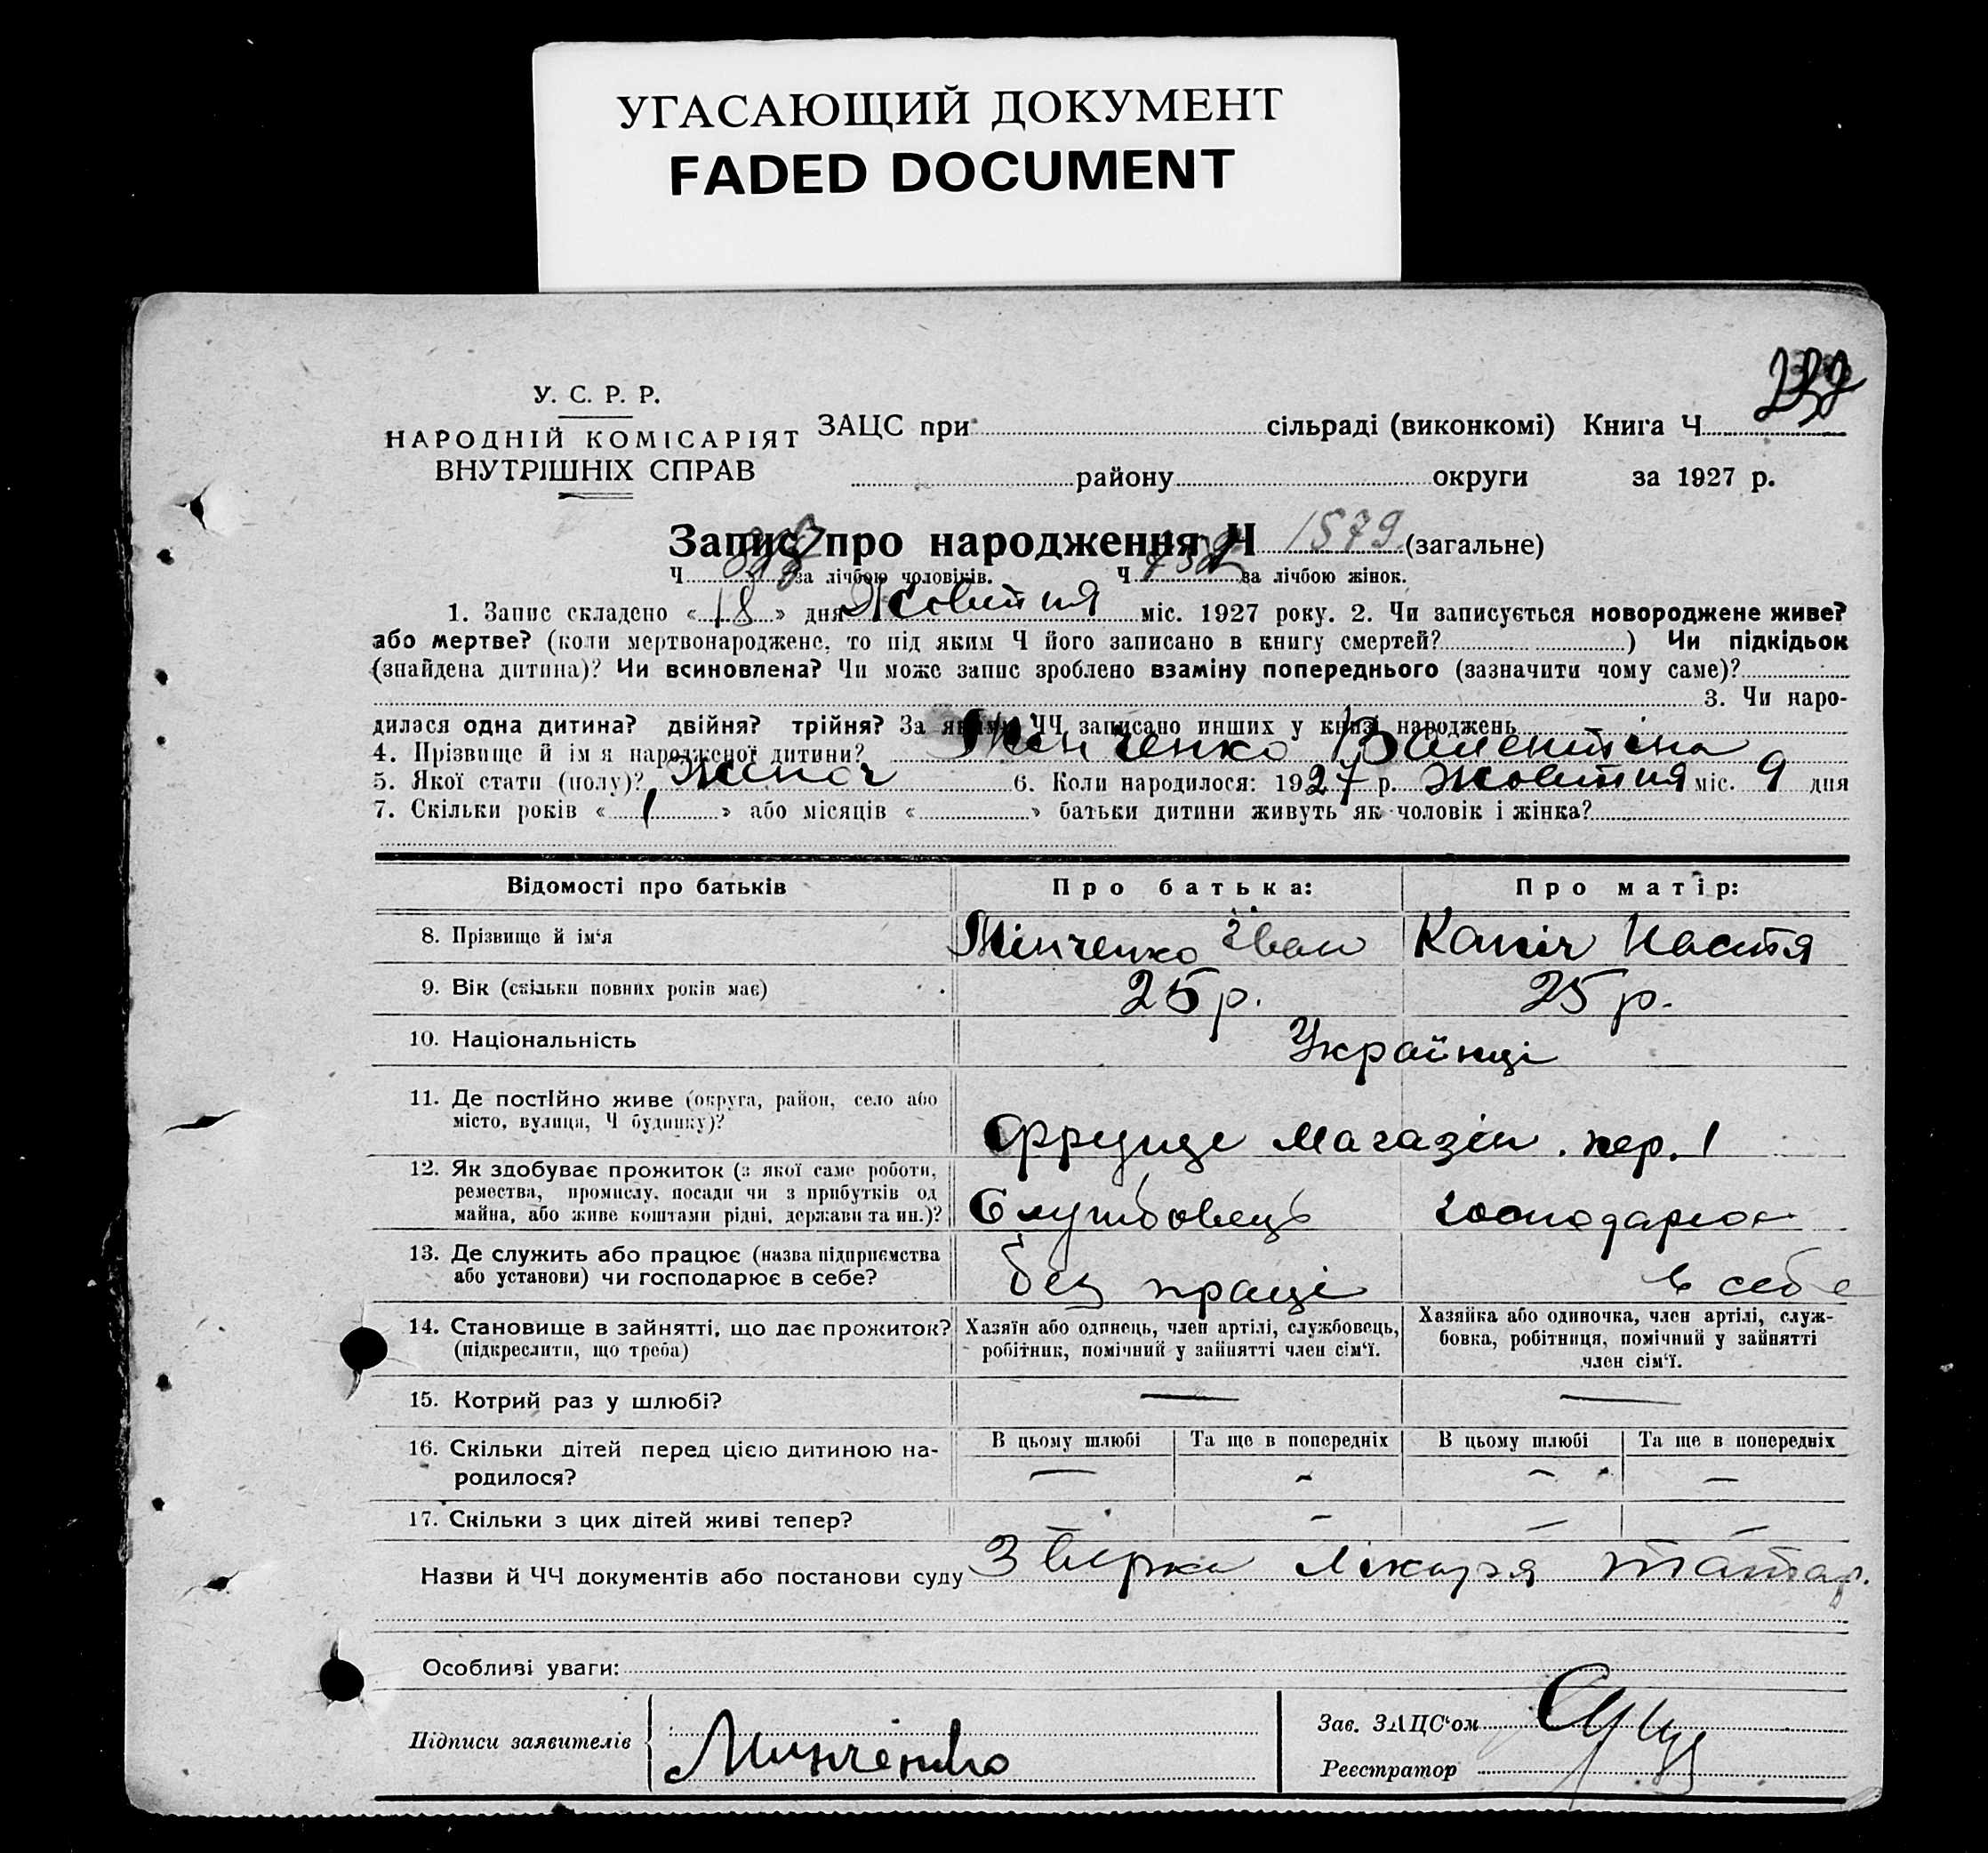 УГАСАЮЩИЙ ДОКУМЕНТ
FADED DOCUMENT
У. С. Р. Р.
НАРОДНІЙ КОМІСАРІЯТ
ВНУТРІШНІХ СПРАВ
ЗАЦС при сільраді (виконкомі) Книга Ч
району округи за 1927 р.
Запис про народження Ч 1579 (загальне)
Ч за лічбою чоловіків. Ч 752 за лічбою жінок.
1. Запис складено «18» дня Жовтня міс. 1927 року. 2. Чи записується новороджене живе?
або мертве? (коли мертвонароджене, то під яким Ч його записано в книгу смертей? ) Чи підкідьок
(знайдена дитина)? Чи всиновлена? Чи може запис зроблено взаміну попереднього (зазначити чому саме)?
3. Чи наро-
дилася одна дитина? двійня? трійня? За яким ЧЧ записано инших у книзі народжень
4. Прізвище й ім я народженої дитини? Мінченко Валентіна
5. Якої стати (полу)? жіноч 6. Коли народилося: 1927 р. жовтня міс. 9 дня
7. Скільки років « 1 » або місяців « » батьки дитини живуть як чоловік і жінка?
Відомості про батьків Про батька: Про матір:
8. Прізвище й ім'я Мінченко Іван Капіч Настя
9. Вік (скільки повних років має) 25 р. 25 р.
10. Національність Українці
11. Де постійно живе (округа, район, село або
місто, вулиця, Ч будинку)? Магазін. пер. 1
12. Як здобуває прожиток (з якої саме роботи,
ремества, промислу, посади чи з прибутків од
майна, або живе коштами рідні, держави та ин.)? Службовець господарює
13. Де служить або працює (назва підприємства
або установи) чи господарює в себе? без праці в себе
14. Становище в зайнятті, що дає прожиток?
(підкреслити, що треба)
Хазяїн або одинець, член артілі, службовець,
робітник, помічний у зайнятті член сім'ї.
Хазяйка або одиночка, член артілі, служ-
бовка, робітниця, помічний у зайнятті
член сім'ї.
15. Котрий раз у шлюбі? — —
16. Скільки дітей перед цією дитиною на-
родилося?
В цьому шлюбі Та ще в попередніх В цьому шлюбі Та ще в попередніх
— - - —
17. Скільки з цих дітей живі тепер? — - — —
Назви й ЧЧ документів або постанови суду лікаря
Особливі уваги:
Підписи заявителів Минченко
Зав. ЗАЦС'ом
Реєстратор